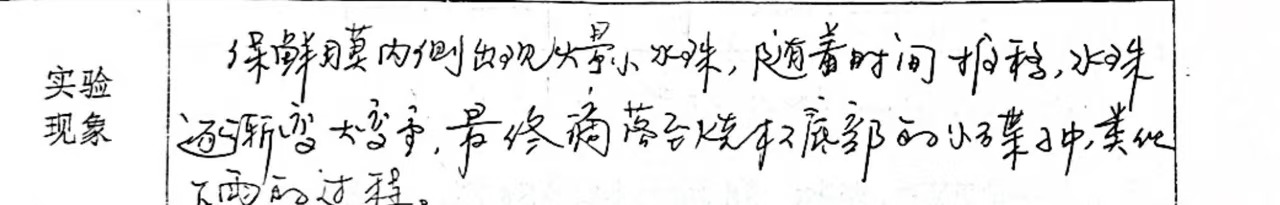 实验
现象
保鲜膜内侧出现少量小水珠，随着时间推移，水珠
逐渐变大变重，最终滴落至烧杯底部的小子叶中，类似
下雨的过程。